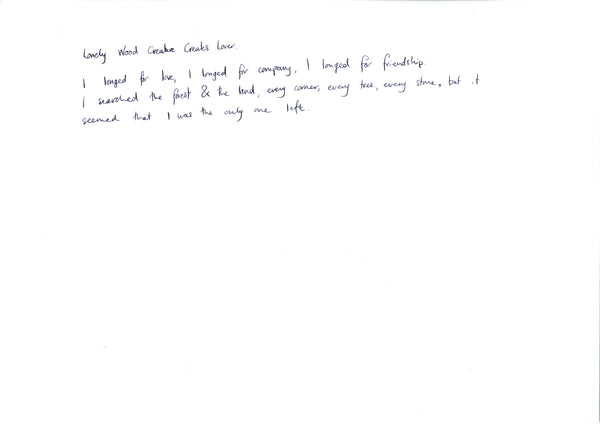 Lonely Wood Creature Creates Lover.
I longed for love, I longed for company, I longed for friendship.
I searched the forest & the land, every corner, every tree, every stone, but it
seemed that I was the only one left.